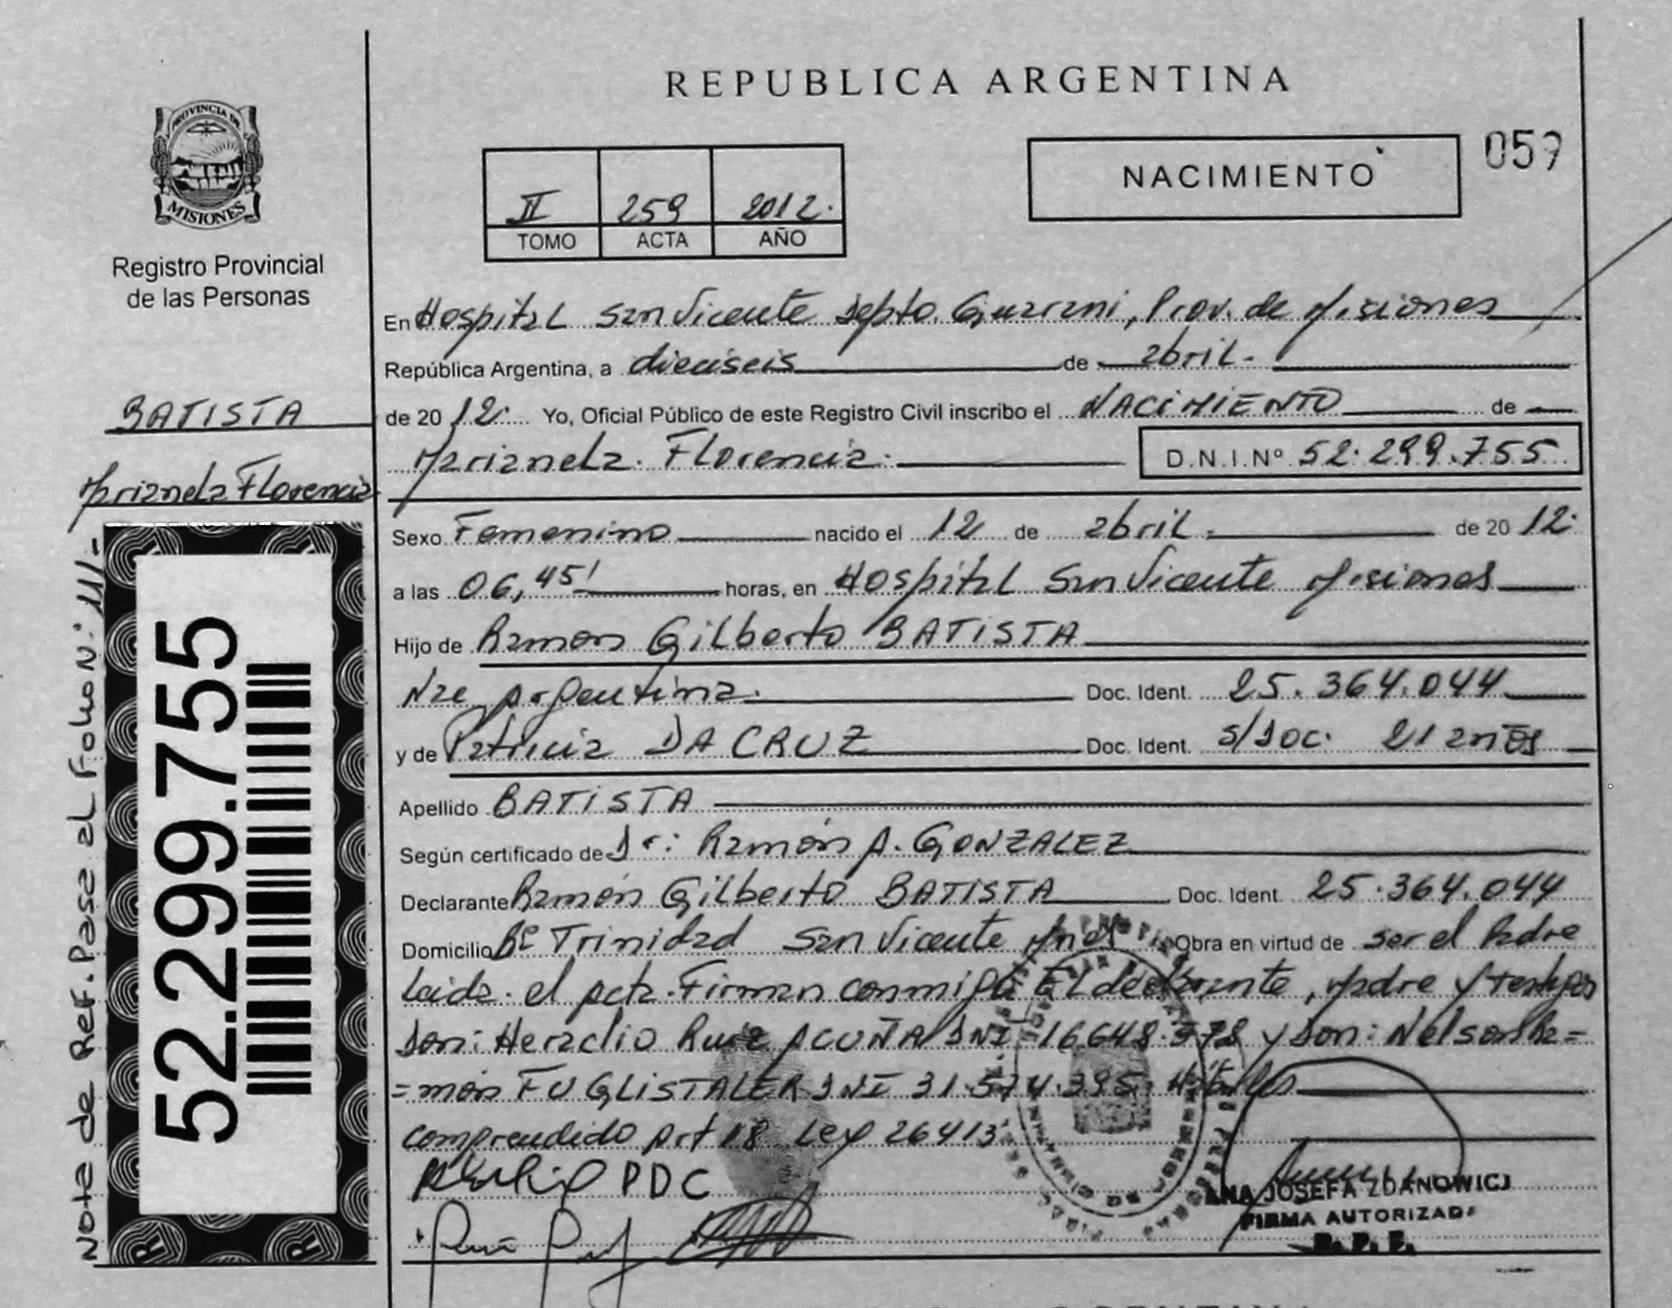 REPUBLICA ARGENTINA
PROVINCIA DE
MISIONES
Registro Provincial
de las Personas
NACIMIENTO
059
II 259 2012.
TOMO ACTA AÑO
En Hospital San Vicente Depto. Guarani, Prov. de Misiones
República Argentina, a dieciseis de abril.
de 20 12. Yo, Oficial Público de este Registro Civil inscribo el NACIMIENTO de
Marianela Florencia. D.N.I.Nº 52.299.755
BATISTA
Marianela Florencia
Sexo Femenino nacido el 12 de abril. de 20 12.
a las 06,45' horas, en Hospital San Vicente Misiones
Hijo de Ramon Gilberto BATISTA
Nac. Argentina. Doc. Ident. 25.364.044
y de Patricia DA CRUZ Doc. Ident. s/Doc. 21 años
Apellido BATISTA
Según certificado de Dr: Ramón A. GONZALEZ
Declarante Ramón Gilberto BATISTA Doc. Ident. 25.364.044
Domicilio Bº Trinidad San Vicente Mnes Obra en virtud de ser el Padre
Leida el Acta Firman conmigo El declarante, Madre y testigos
Don: Heraclio Ruiz ACUÑA DNI 16648.978 y Don: Nelson Ra=
=món FUGLISTALER DNI 31.574.395. Hábiles
comprendido Art 18 Ley 26413
PDC
ANA JOSEFA ZDANOWICZ
FIRMA AUTORIZADA
R. P. P.
Nota de Ref. Pasa al Folio N° 11/-
52.299.755